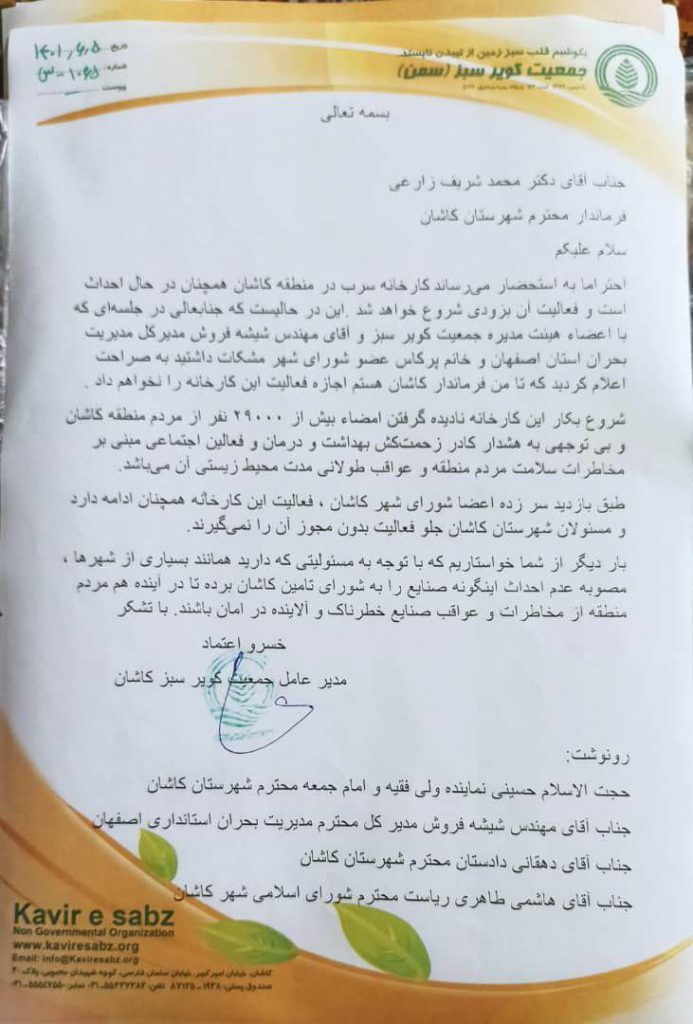 بکوشیم قلب سبز زمین از تپیدن نایستد
جمعیت کویر سبز (سمن)
تاریخ: ۱۴۰۱,۶,۵
شماره:
پیوست:
بسمه تعالی
جناب آقای دکتر محمد شریف زارعی
فرماندار محترم شهرستان کاشان
سلام علیکم
احتراما به استحضار می‌رساند کارخانه سرب در منطقه کاشان همچنان در حال احداث
است و فعالیت آن بزودی شروع خواهد شد .این در حالیست که جنابعالی در جلسه‌ای که
با اعضاء هیئت مدیره جمعیت کویر سبز و آقای مهندس شیشه فروش مدیرکل مدیریت
بحران استان اصفهان و خانم پرکاس عضو شورای شهر مشکات داشتید به صراحت
اعلام کردید که تا من فرماندار کاشان هستم اجازه فعالیت این کارخانه را نخواهم داد .
شروع بکار این کارخانه نادیده گرفتن امضاء بیش از ۲۹۰۰۰ نفر از مردم منطقه کاشان
و بی توجهی به هشدار کادر زحمت‌کش بهداشت و درمان و فعالین اجتماعی مبنی بر
مخاطرات سلامت مردم منطقه و عواقب طولانی مدت محیط زیستی آن می‌باشد.
طبق بازدید سر زده اعضا شورای شهر کاشان ، فعالیت این کارخانه همچنان ادامه دارد
و مسئولان شهرستان کاشان جلو فعالیت بدون مجوز آن را نمی‌گیرند.
بار دیگر از شما خواستاریم که با توجه به مسئولیتی که دارید همانند بسیاری از شهرها ،
مصوبه عدم احداث اینگونه صنایع را به شورای تامین کاشان برده تا در آینده هم مردم
منطقه از مخاطرات و عواقب صنایع خطرناک و آلاینده در امان باشند. با تشکر
خسرو اعتماد
مدیر عامل جمعیت کویر سبز کاشان
رونوشت:
حجت الاسلام حسینی نماینده ولی فقیه و امام جمعه محترم شهرستان کاشان
جناب آقای مهندس شیشه فروش مدیر کل محترم مدیریت بحران استانداری اصفهان
جناب آقای دهقانی دادستان محترم شهرستان کاشان
جناب آقای هاشمی طاهری ریاست محترم شورای اسلامی شهر کاشان
Kavir e sabz
Non Governmental Organization
www.kaviresabz.org
Email: info@Kaviresabz.org
کاشان، خیابان امیرکبیر، خیابان سلمان فارسی، کوچه شهیدان محبوبی، پلاک ۳۰
صندوق پستی: ۱۹۳۸ـ۸۷۱۳۵ تلفن: ۵۵۳۳۷۲۸۲-۰۳۱ نمابر: ۵۵۵۴۷۵۵۰-۰۳۱